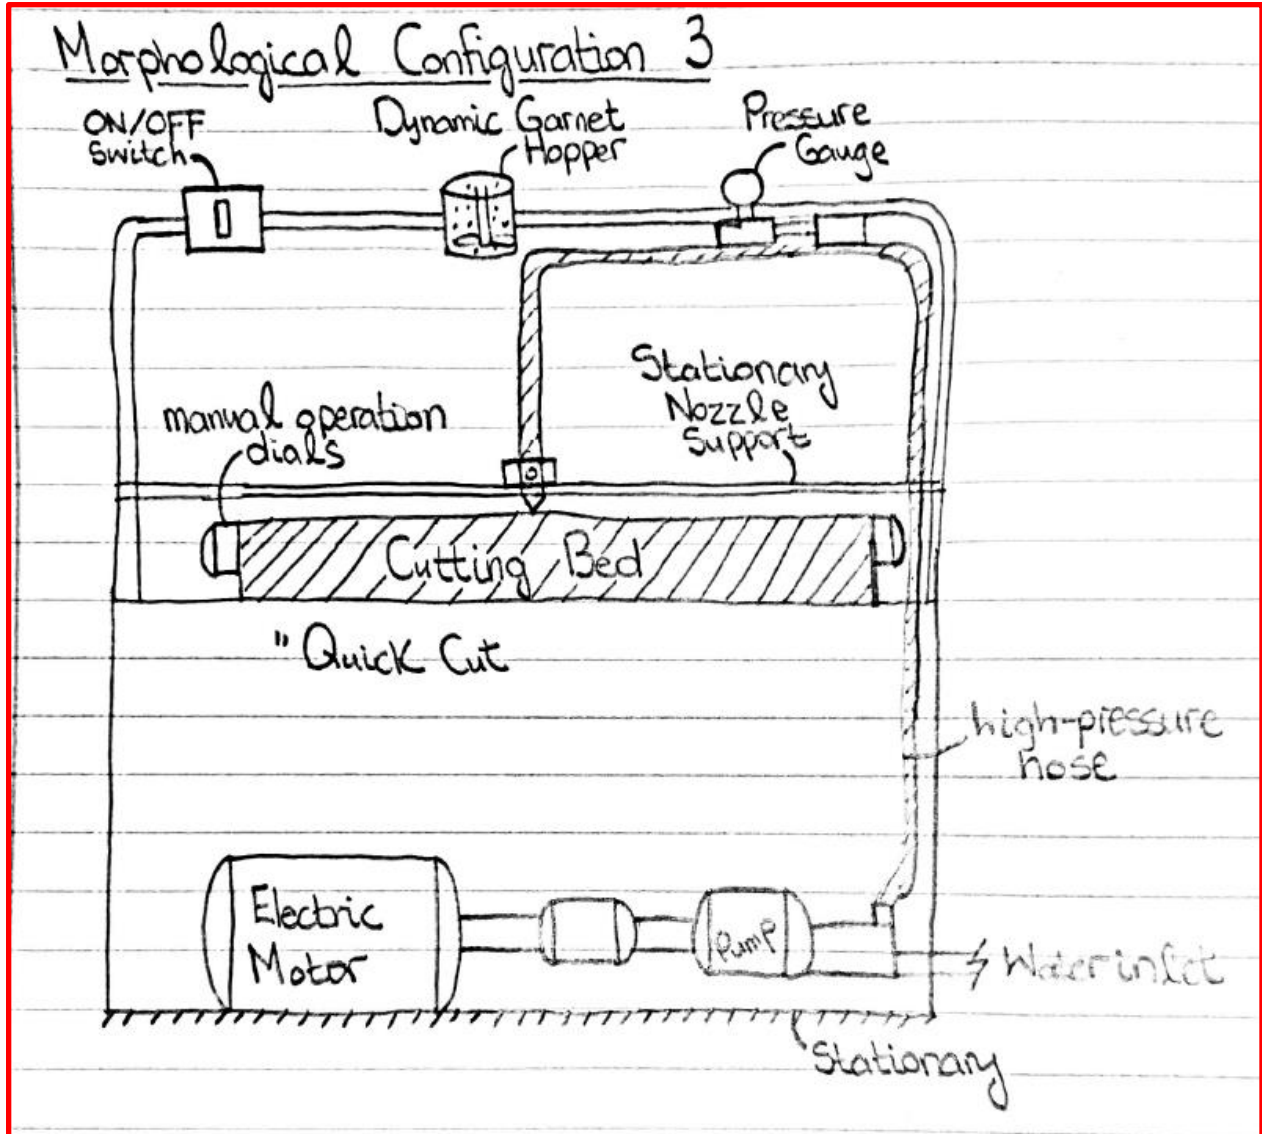 Morphological Configuration 3
ON/OFF
Switch
Dynamic Garnet
Hopper
Pressure
Gauge
Stationary
Nozzle
Support
manual operation
dials
Cutting Bed
" Quick Cut
high-pressure
hose
Electric
Motor
Pump
Water inlet
Stationary